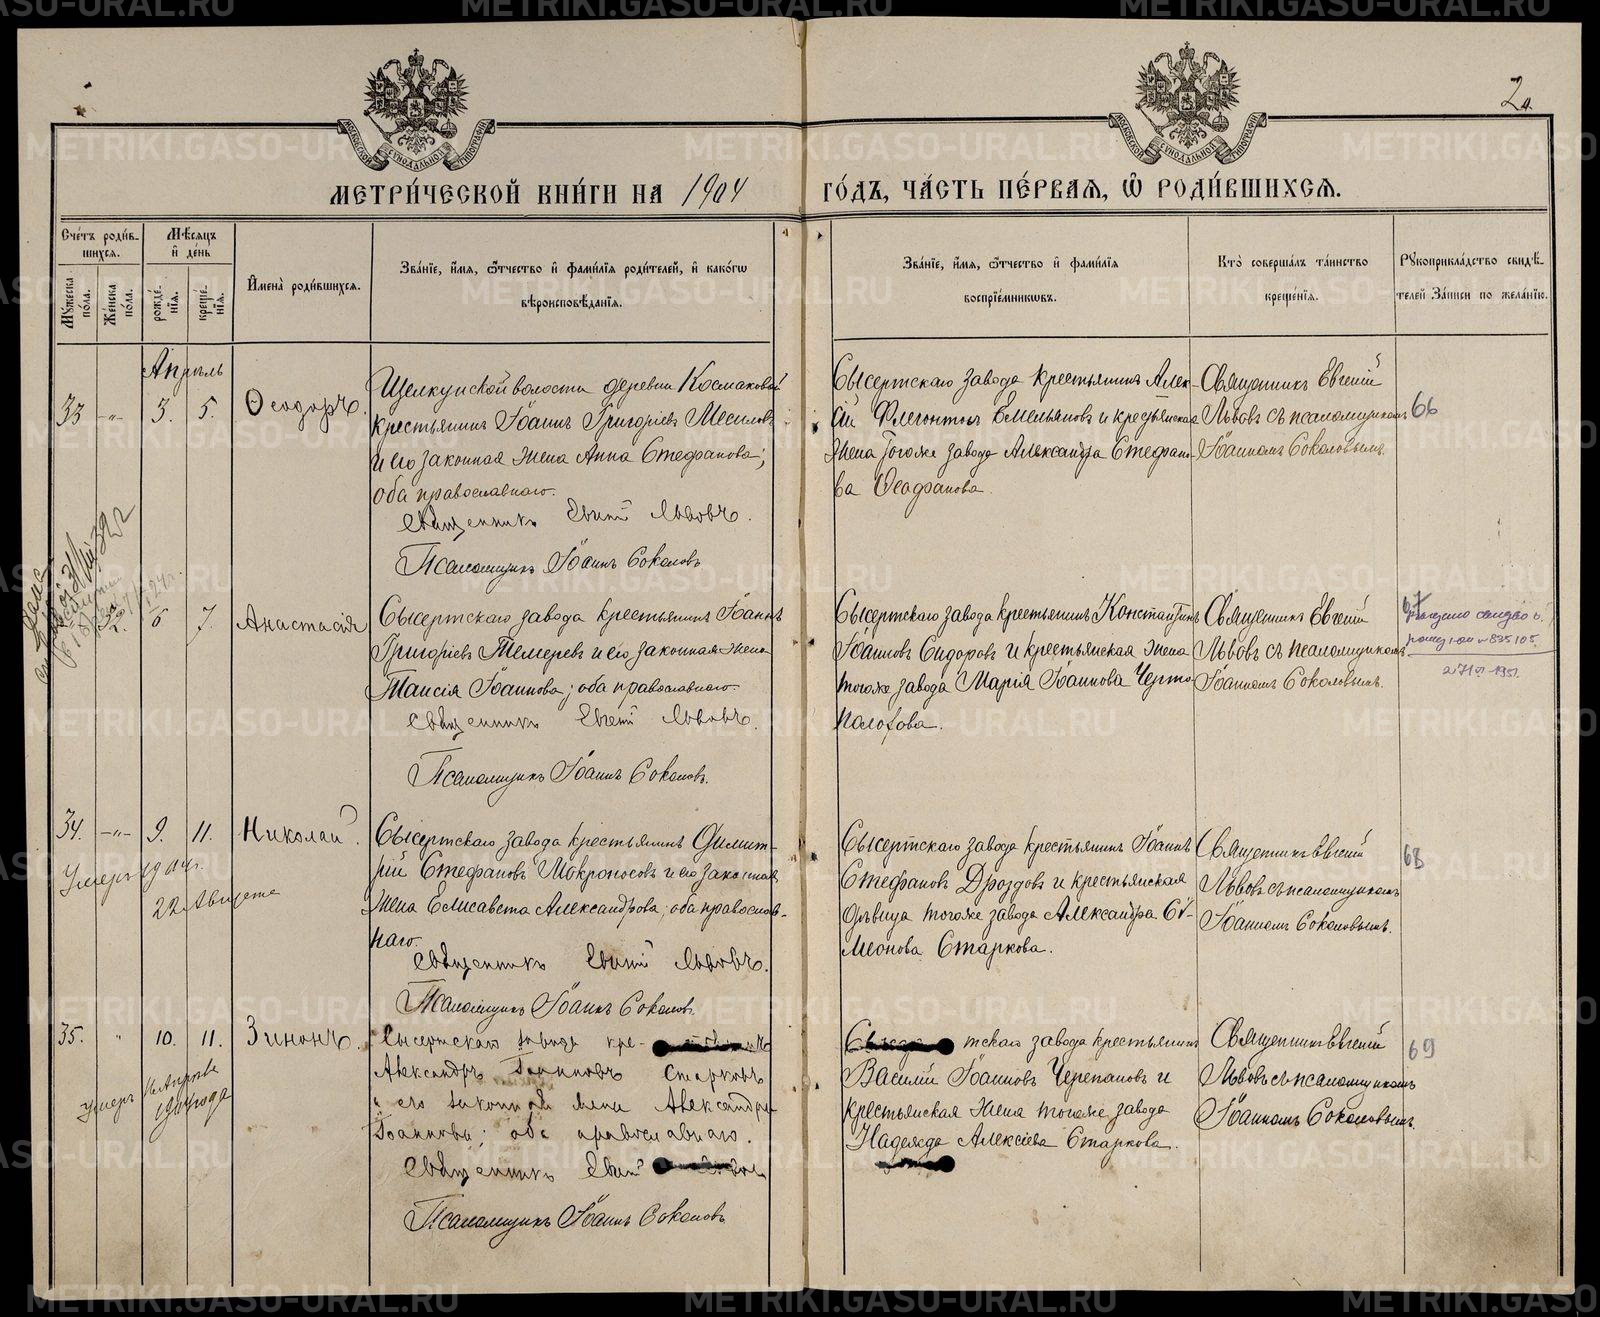 МЕТРИ́ЧЕСКОЙ КНИ́ГИ НА 1904 ГО́ДЪ, ЧА́СТЬ ПЕ́РВАЯ, Ѿ РОДИ́ВШИХСЯ.
Счетъ роди́в-
шихся.
Мужеска
по́ла.
Же́нска
пола.
Мѣсяцъ
и де́нь
рожде́-
нія.
креще́-
нія.
Имена̀ роди́вшихся.
Зва́ніе, и́мя, ѻ҆́тчество и фами́лія роди́телей, и како́гѡ
вѣроисповѣ́данія.
Зва́ніе, и́мя, ѻ҆́тчество и фами́лія
воспріе́мниковъ.
Кто̀ соверша́лъ та́инство
креще́нія.
Рукоприкла́дство свидѣ́-
телей за́писи по жела́нію.
Апрѣль
33 -"- 3. 5. Ѳеодоръ.
Щелкунской волости деревни Космаковой
крестьянинъ Іоаннъ Григоріевъ
и его законная жена Анна Стефанова;
оба православнаго.
Священникъ Евгеній Львовъ.
Псаломщикъ Іоаннъ Соколовъ
Сысертскаго завода крестьянинъ Алек-
сій Флегонтовъ Емельяновъ и крестьянская
жена тогоже завода Александра Стефано-
ва Ѳеофанова.
Священникъ Евгеній
Львовъ съ псаломщикомъ
Іоанномъ Соколовымъ.
66
6 7. Анастасія
Сысертскаго завода крестьянинъ Іоаннъ
Григоріевъ Темеревъ и его законная жена
Таисія Іоаннова; оба православнаго.
Священникъ Евгеній Львовъ.
Псаломщикъ Іоаннъ Соколовъ.
Сысертскаго завода крестьянинъ Константинъ
Іоанновъ Сидоровъ и крестьянская жена
тогоже завода Марія Іоаннова Черто-
полохова.
Священникъ Евгеній
Львовъ съ псаломщикомъ
Іоанномъ Соколовымъ.
67
34. -"- 9. 11. Николай.
Умеръ 1904 г.
22 Августа
Сысертскаго завода крестьянинъ Димит-
рій Стефановъ Мокроносовъ и его законная
жена Елисавета Александрова; оба православ-
наго.
Священникъ Евгеній Львовъ.
Псаломщикъ Іоаннъ Соколовъ.
Сысертскаго завода крестьянинъ Іоаннъ
Стефановъ Дроздовъ и крестьянская
дѣвица тогоже завода Александра Си-
меонова Старкова.
Священникъ Евгеній
Львовъ съ псаломщикомъ
Іоанномъ Соколовымъ.
68
35. " 10. 11. Зинонъ.
умеръ Апрѣля
1904 года
Сысертскаго завода кре-
Александръ Іоанновъ Старковъ
и его законная жена Александра
Іоаннова; оба православнаго.
Священникъ Евгеній
Псаломщикъ Іоаннъ Соколовъ
тскаго завода крестьянинъ
Василій Іоанновъ Черепановъ и
крестьянская жена тогоже завода
Надежда Алексіева Старкова.
Священникъ Евгеній
Львовъ съ псаломщикомъ
Іоанномъ Соколовымъ.
69
METRIKI.GASO-URAL.RU